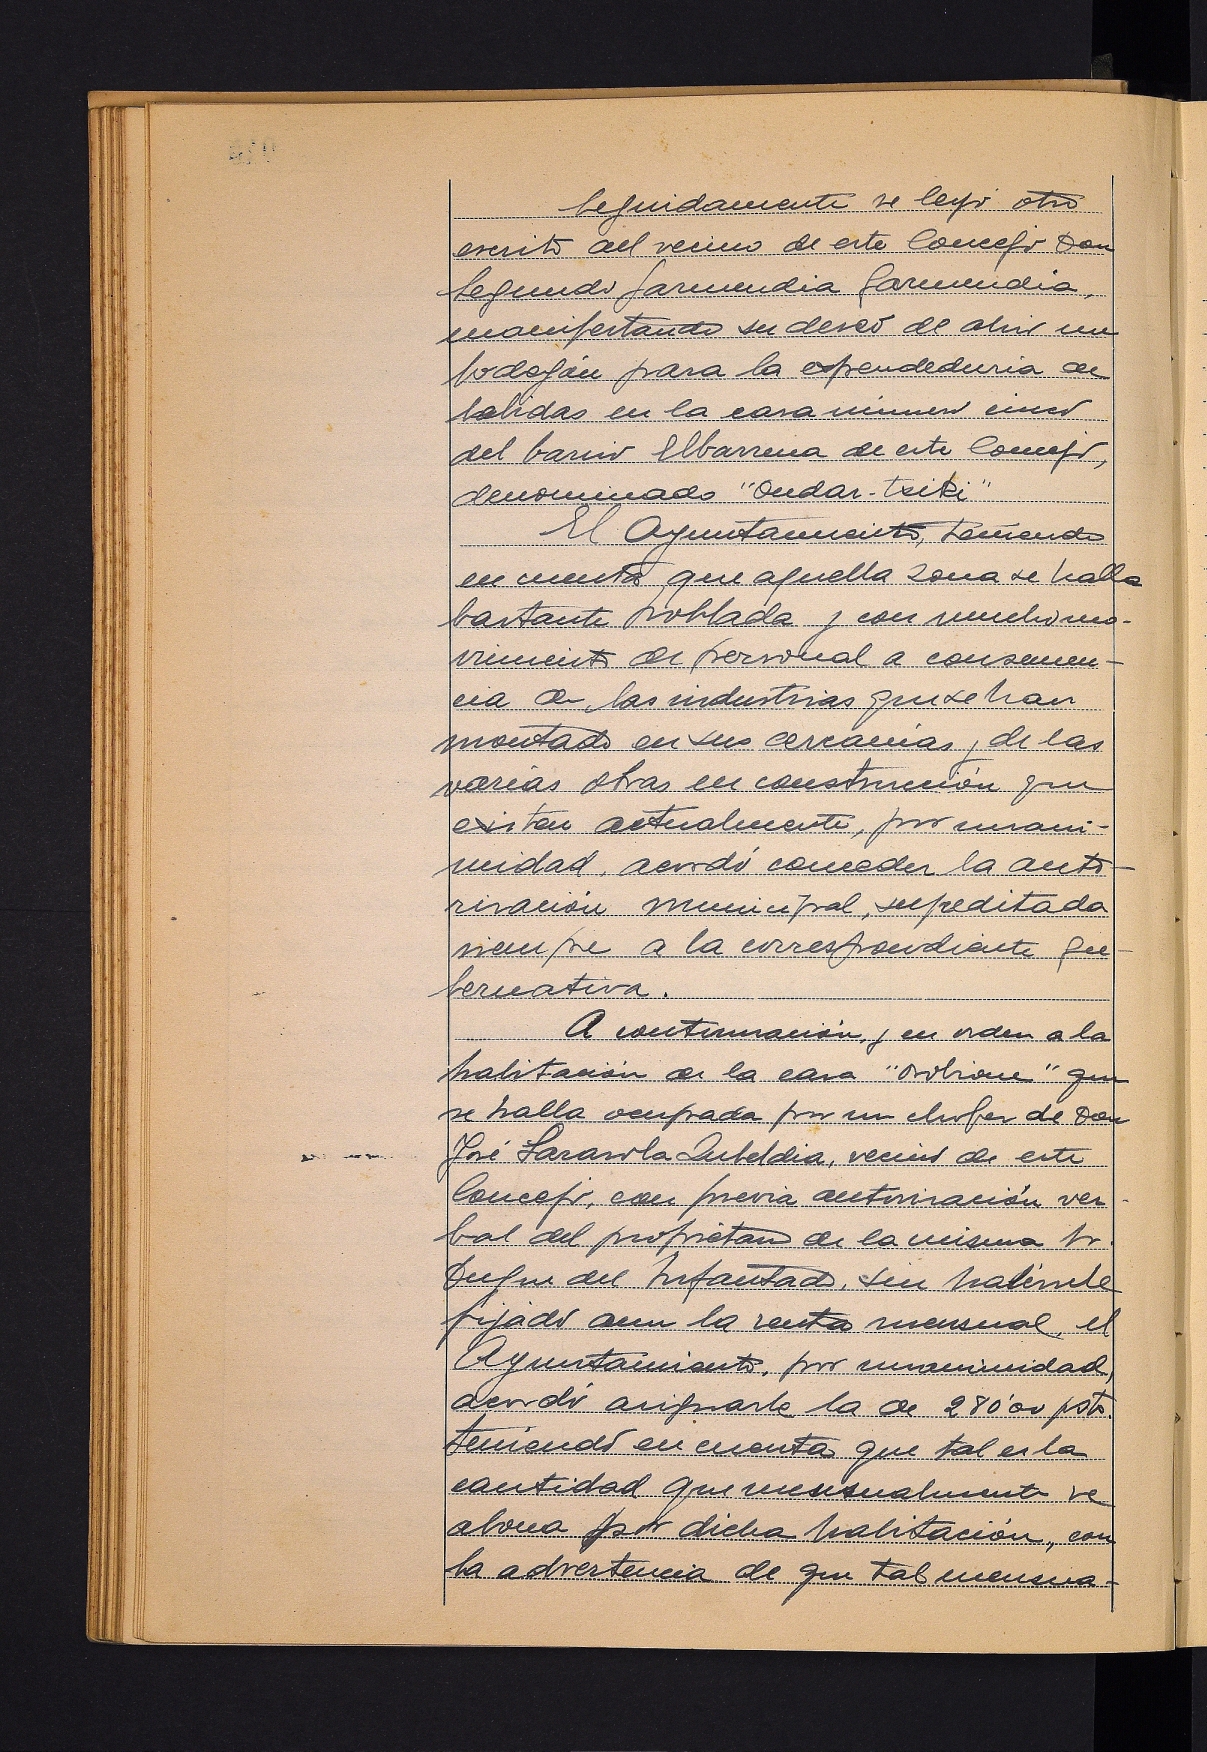 Seguidamente se leyó otro
escrito del vecino de este Concejo Don
Segundo Garmendia Garmendia,
manifestando su deseo de abrir un
bodegón para la expendeduria de
bebidas en la casa número cinco
del barrio Elbarrena de este Concejo,
denominado "Ondar-txiki"
El Ayuntamiento, teniendo
en cuenta que aquella zona se halla
bastante poblada y con mucho mo-
vimiento de personal a consecuen-
cia de las industrias que se han
montado en sus cercanías y de las
varias obras en construcción que
existen actualmente, por unani-
midad, acordó conceder la auto-
rización municipal, supeditada
siempre a la correspondiente gu-
bernativa.
A continuación, y en orden a la
habitación de la casa "Orobione" que
se halla ocupada por un chofer de Don
José Sarasola Zubeldia, vecino de este
Concejo, con previa autorización ver-
bal del propietario de la misma Sr.
Duque del Infantado, sin habérsele
fijado aun la renta mensual, el
Ayuntamiento, por unanimidad,
acordó asignarle la de 280'00 pts.
teniendo en cuenta que tal es la
cantidad que mensualmente se
abona por dicha habitación, con
la advertencia de que tal mensua-